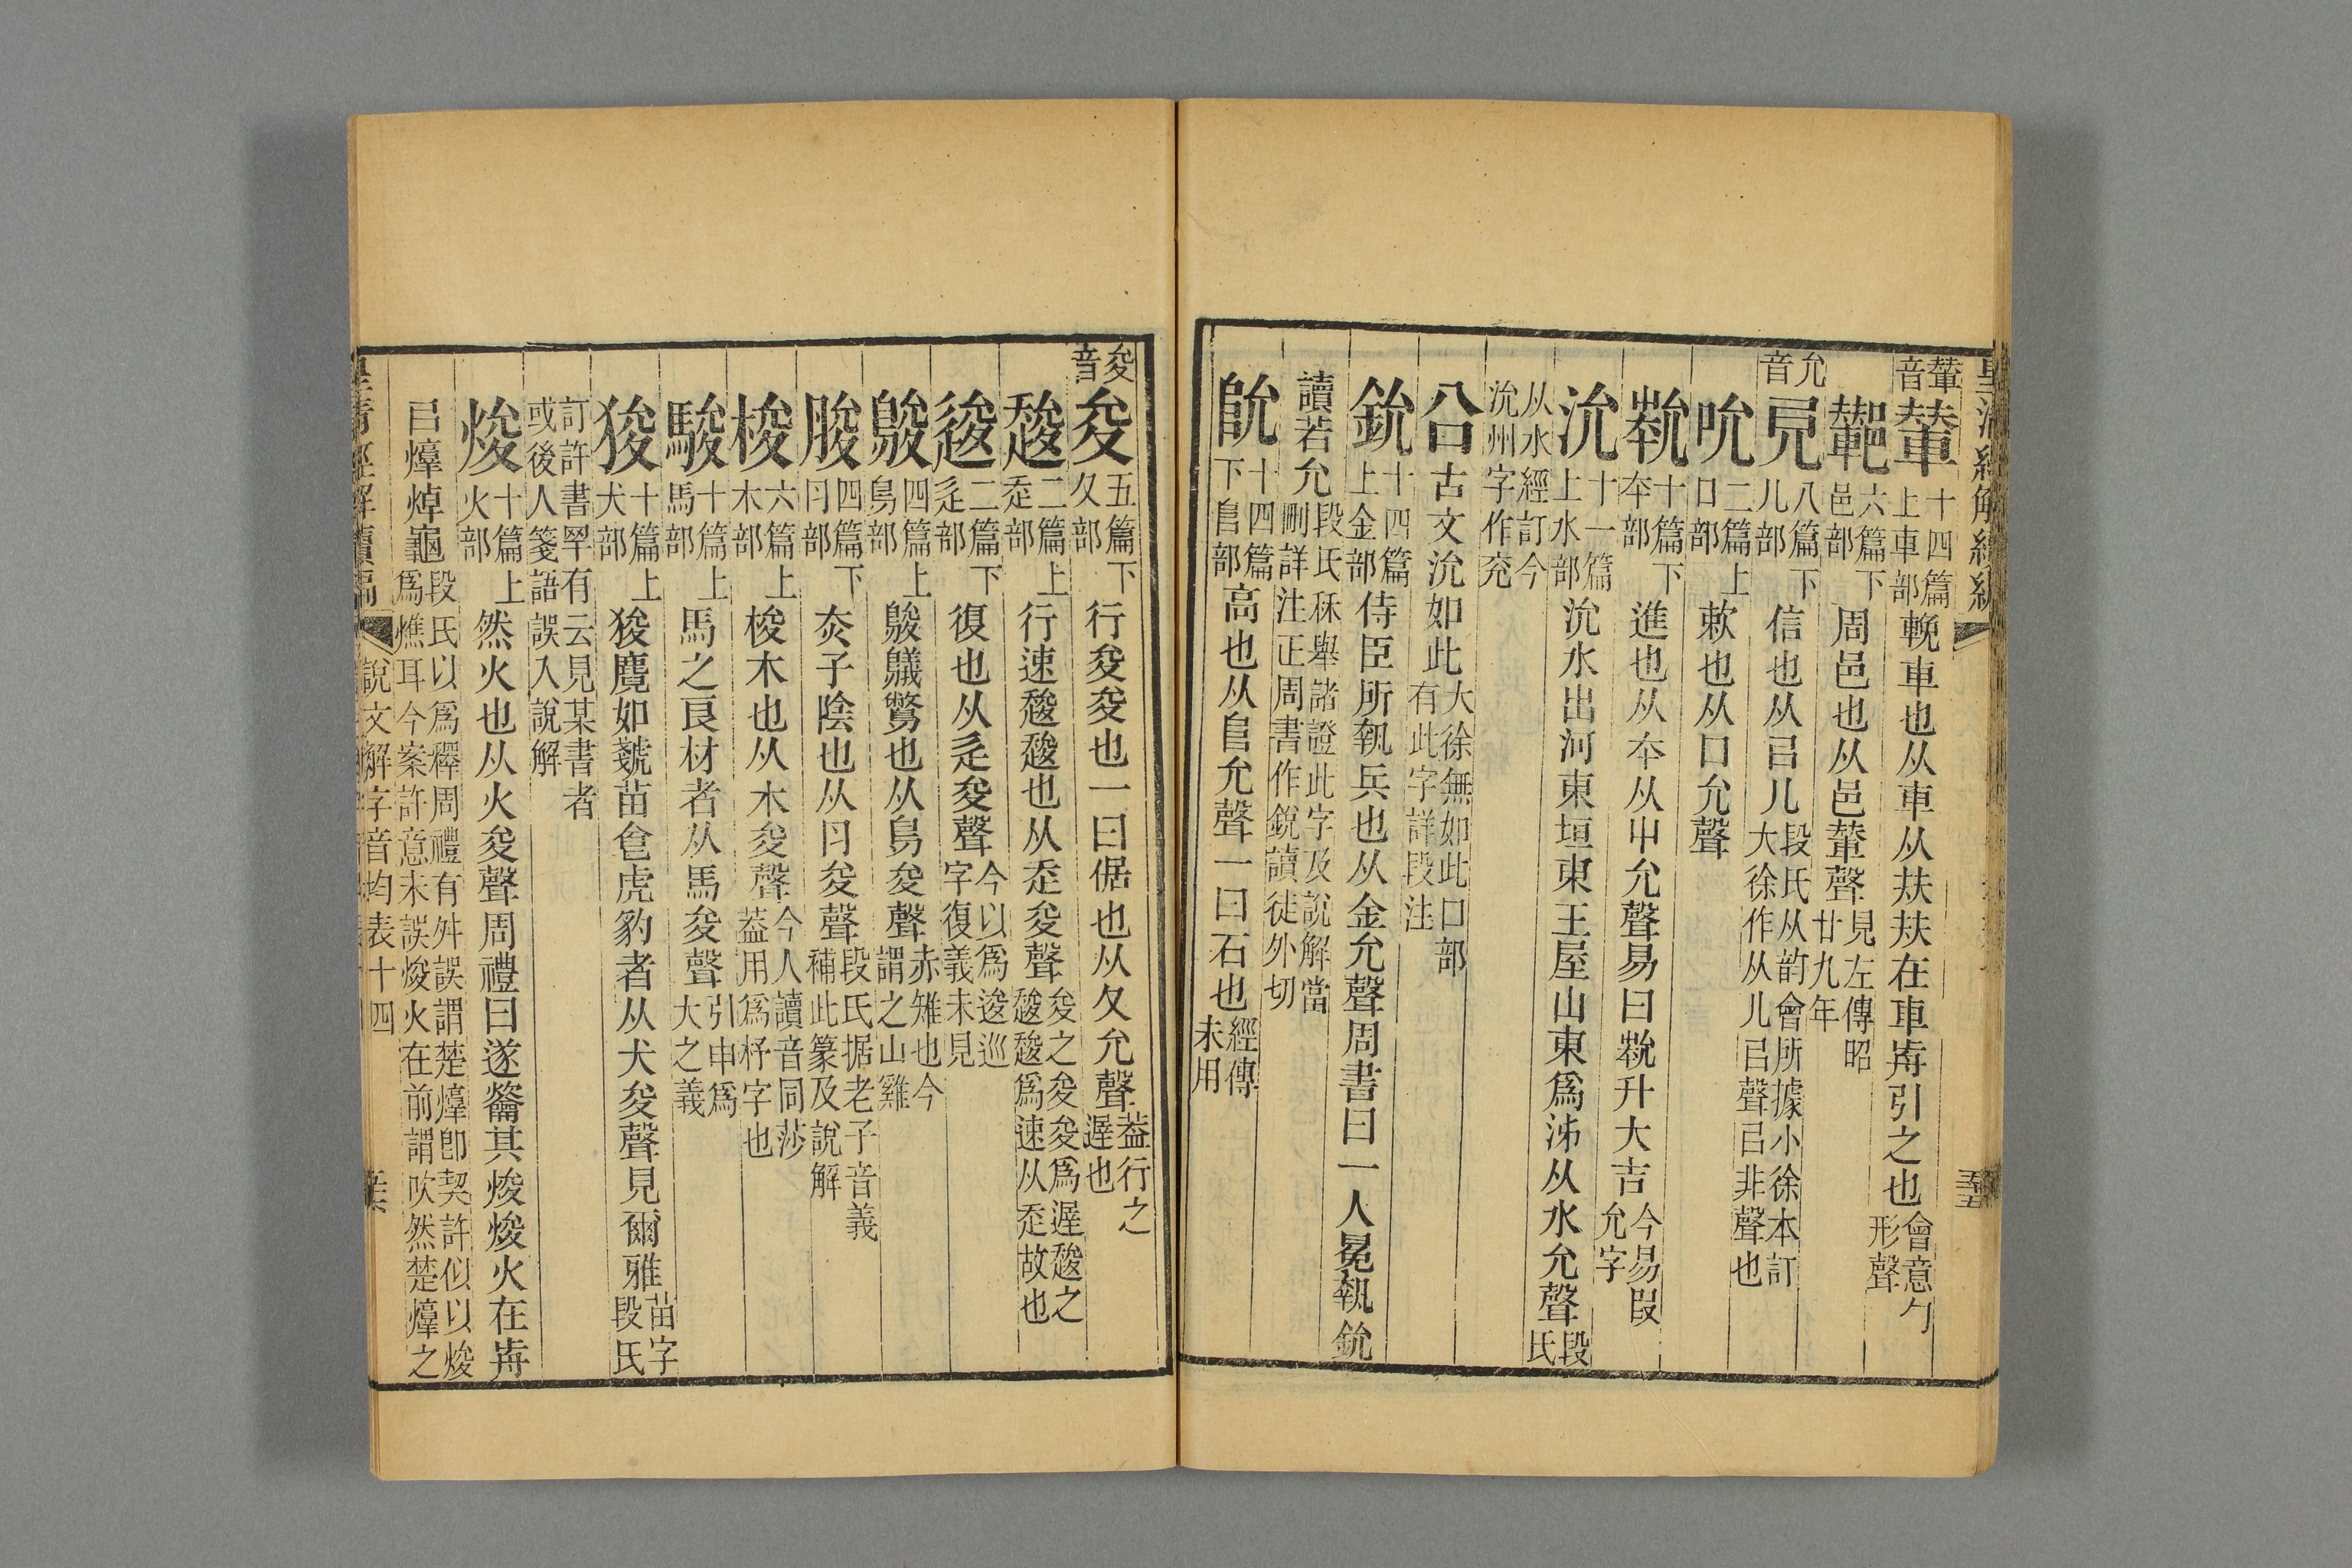 輦音輦十四篇上車部輓車也从車从㚘㚘在車歬引之也會意勹形聲
䣴六篇下邑部周邑也从邑輦聲見左傳昭廿九年
允音允八篇下儿部信也从㠯儿段氏从韵會所據小徐本訂大徐作从儿㠯聲㠯非聲也
吮二篇上口部欶也从口允聲
㽙十篇下夲部進也从夲从屮允聲易曰㽙升大吉今易叚允字
沇十一篇上水部沇水出河東垣東王屋山東爲泲从水允聲段氏
从水經訂今沇州字作兖
㕣古文沇如此大徐無如此口部有此字詳段注
鈗十四篇上金部侍臣所執兵也从金允聲周書曰一人冕執鈗
讀若允段氏秝舉諸證此字及說解當刪詳注正周書作銳讀徒外切
阭十四篇下𨸏部高也从𨸏允聲一曰石也經傳未用
皇清經解續編
夋音夋五篇下夊部行夋夋也一曰倨也从夊允聲葢行之遲也
趚二篇上走部行速趚趚也从走夋聲夋之夋夋爲遲趚之趚趚爲速从走故也
逡二篇下辵部復也从辵夋聲今以爲逡巡字復義未見
鵔四篇上鳥部鵔鸃鷩也从鳥夋聲赤雉也今謂之山雞
朘四篇下肉部赤子陰也从肉夋聲段氏据老子音義補此篆及說解
梭六篇上木部梭木也从木夋聲今人讀音同莎葢用爲杼字也
駿十篇上馬部馬之良材者从馬夋聲引申爲大之義
狻十篇上犬部狻麑如虦苗食虎豹者从犬夋聲見爾雅苗字段氏
訂許書罕有云見某書者或後人箋語誤入說解
焌十篇上火部然火也从火夋聲周禮曰遂籥其焌焌火在歬
㠯燇焯龜段氏以爲釋周禮有舛誤謂楚燇卽契許似以焌爲燋耳今案許意未誤焌火在前謂吹然楚燇之
說文解字音均表十四